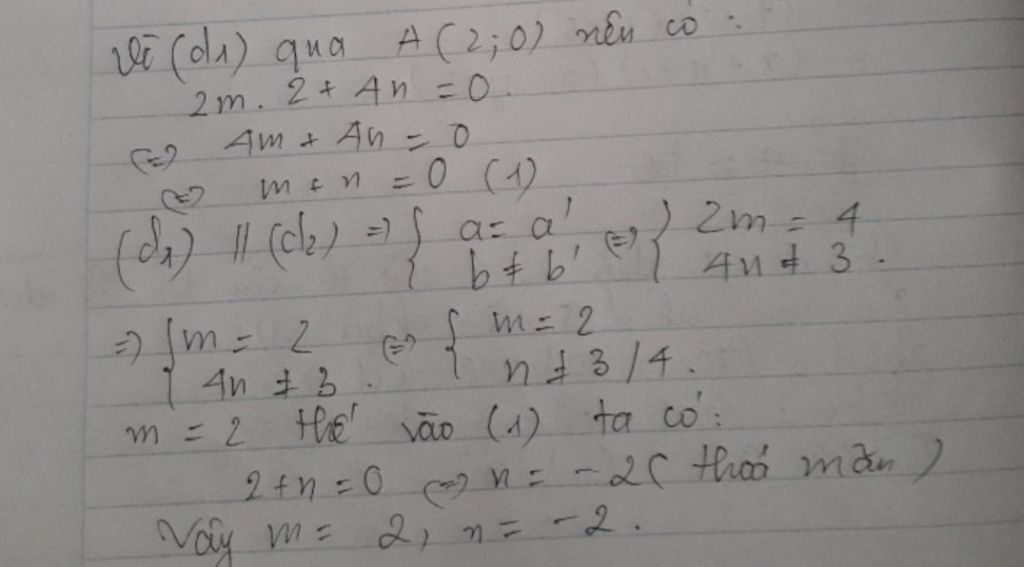 Vì (d1) qua A(2;0) nên có:
2m.2+4n=0.
<=> 4m+4n=0
<=> m+n=0 (1)
(d1) // (d2) => { a=a' <=> { 2m=4
b≠b' 4n≠3.
=> { m=2 <=> { m=2
4n≠3. n≠3/4.
m=2 thế vào (1) ta có:
2+n=0 <=> n=-2 (thoả mãn)
Vậy m=2, n=-2.